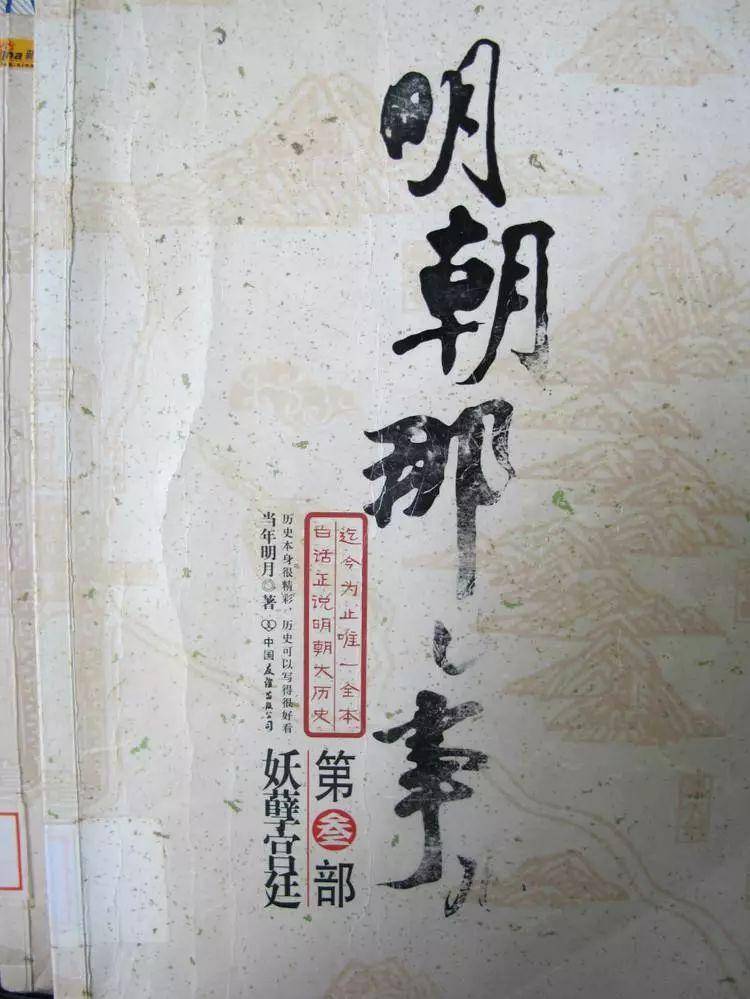 明朝那些事儿
迄今为止唯一全本
白话正说明朝大历史
历史本身很精彩，历史可以写得很好看
当年明月◎著 中国友谊出版公司
第叁部
妖孽宫廷